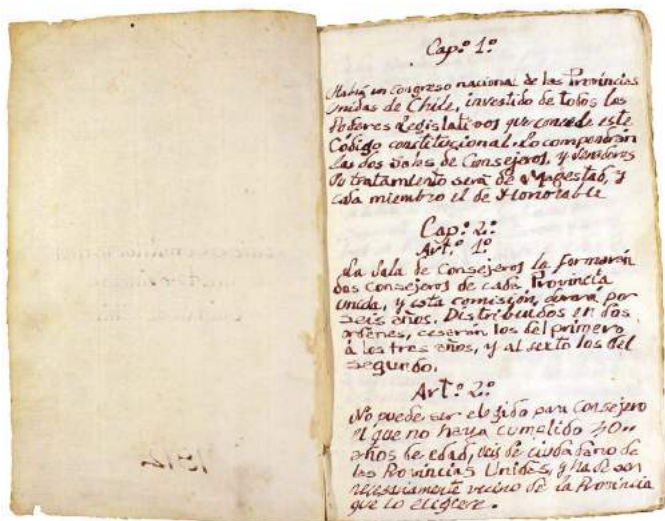 Cap.º 1.º
Habrá un congreso nacional de las Provincias
Unidas de Chile, investido de todos los
Poderes Legislativos que concede este
Código constitucional. Lo compondrán
las dos Salas de Consejeros, y Senadores
Su tratamiento será de Magestad, y
cada miembro el de Honorable
Cap.º 2.º
Art.º 1.º
La Sala de Consejeros la formarán
dos Consejeros de cada Provincia
Unida, y esta comisión, durará por
seis años. Distribuidos en dos
ordenes, cesarán los del primero
á los tres años, y al sexto los del
segundo.
Art.º 2.º
No puede ser elegido para Consejero
el que no haya cumplido 30..
años de edad, seis de ciudadano de
las Provincias Unidas, y ha de ser
necesariamente vecino de la Provincia
que lo eligiere.